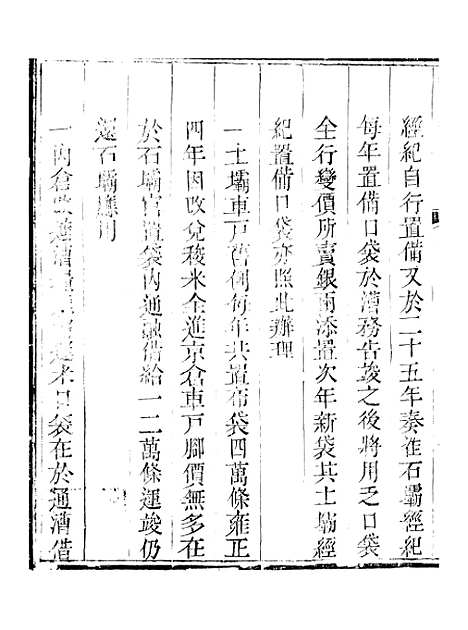 經紀自行置備又於二十五年奏准石壩經紀
每年置備口袋於漕務告竣之後將用乏口袋
全行變價所賣銀兩添置次年新袋其土壩經
紀置備口袋亦照此辦理
一土壩車戸舊例每年共置布袋四萬條雍正
四年因改兌稜米全進京倉車戸腳價無多在
於石壩官置袋內通融借給一二萬條運竣仍
還石壩應用
一內倉 運 米口袋在於通濟借